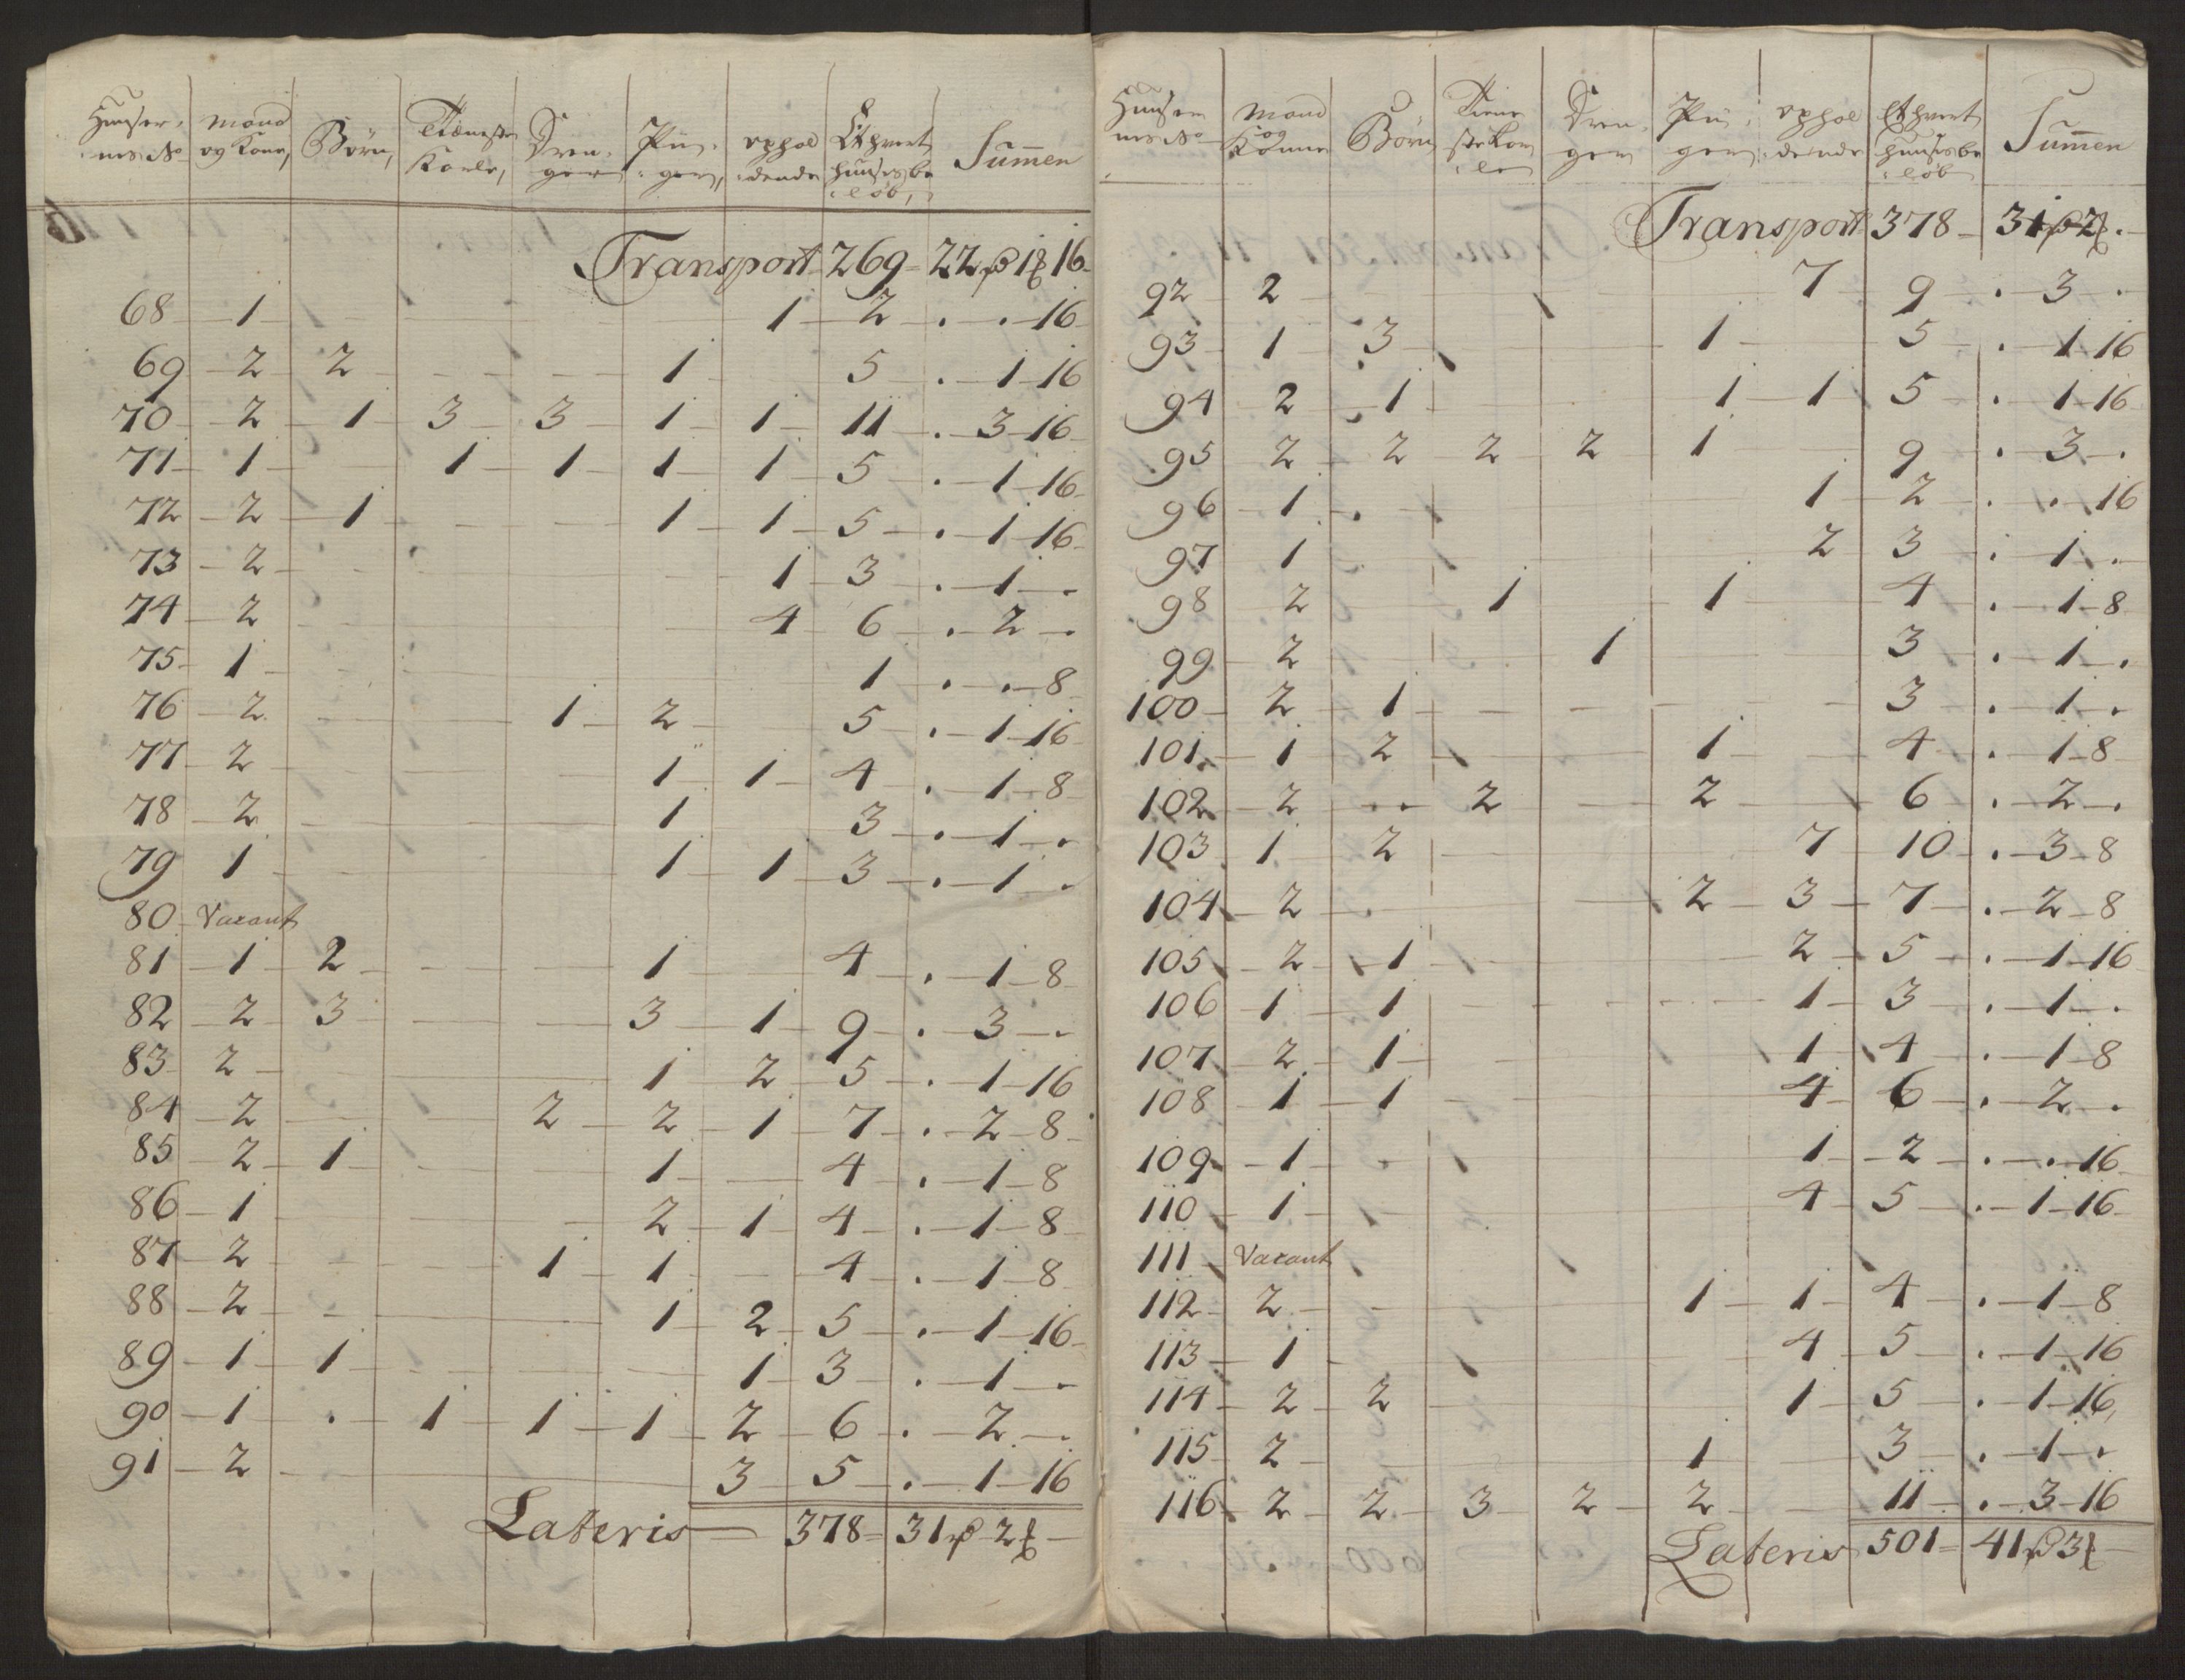 Huuser- nes No | Mand og Kone, | Börn, | Tieneste Karle, | Dren- ger | Pii- ger, | ophol dende | Ethvert huuses be löb, | Summen
Transport 269 - 22 rd 1 ƒ 16
68 - 1 - 1 - 2 - . - . - 16
69 - 2 - 2 - 1 - 5 - . - 1 - 16
70 - 2 - 1 - 3 - 3 - 1 - 1 - 11 - . - 3 - 16
71 - 1 - 1 - 1 - 1 - 1 - 5 - . - 1 - 16
72 - 2 - 1 - 1 - 1 - 5 - . - 1 - 16
73 - 2 - 1 - 3 - . - 1 - .
74 - 2 - 4 - 6 - . - 2 - .
75 - 1 - 1 - . - . - 8
76 - 2 - 1 - 2 - 5 - . - 1 - 16
77 - 2 - 1 - 1 - 4 - . - 1 - 8
78 - 2 - 1 - 3 - . - 1 - .
79 - 1 - 1 - 1 - 3 - . - 1 - .
80 - Vacant
81 - 1 - 2 - 1 - 4 - . - 1 - 8
82 - 2 - 3 - 3 - 1 - 9 - . - 3 - .
83 - 2 - 1 - 2 - 5 - . - 1 - 16
84 - 2 - 2 - 2 - 1 - 7 - . - 2 - 8
85 - 2 - 1 - 1 - 4 - . - 1 - 8
86 - 1 - 2 - 1 - 4 - . - 1 - 8
87 - 2 - 1 - 1 - 4 - . - 1 - 8
88 - 2 - 1 - 2 - 5 - . - 1 - 16
89 - 1 - 1 - 1 - 3 - . - 1 - .
90 - 1 - . - 1 - 1 - 1 - 2 - 6 - . - 2 - .
91 - 2 - 3 - 5 - . - 1 - 16
Lateris - 378 - 31 rd 2 ƒ -
Huuser nes No | Mand og Konne | Börn | Tiene ste Kar le | Dren- ger | Pii- ger | ophol dende | Ethvert huuses be löb | Summen
Transport 378 - 31 rd 2 ƒ . -
92 - 2 - 7 - 9 - . - 3 - .
93 - 1 - 3 - 1 - 5 - . - 1 - 16
94 - 2 - 1 - 1 - 1 - 5 - . - 1 - 16
95 - 2 - 2 - 2 - 2 - 1 - 9 - . - 3 - .
96 - 1 - . - 1 - 2 - . - . - 16
97 - 1 - 2 - 3 - . - 1 - .
98 - 2 - 1 - 1 - 4 - . - 1 - 8
99 - 2 - 1 - 3 - . - 1 - .
100 - 2 - 1 - 3 - . - 1 - .
101 - 1 - 2 - 1 - 4 - . - 1 - 8
102 - 2 - . . - 2 - 2 - 6 - . - 2 - .
103 - 1 - 2 - 7 - 10 - . - 3 - 8
104 - 2 - . - 2 - 3 - 7 - . - 2 - 8
105 - 2 - 1 - 2 - 5 - . - 1 - 16
106 - 1 - 1 - 1 - 3 - . - 1 - .
107 - 2 - 1 - 1 - 4 - . - 1 - 8
108 - 1 - 1 - 4 - 6 - . - 2 - .
109 - 1 - 1 - 2 - . - . - 16
110 - 1 - 4 - 5 - . - 1 - 16
111 - Vacant
112 - 2 - 1 - 1 - 4 - . - 1 - 8
113 - 1 - 4 - 5 - . - 1 - 16
114 - 2 - 2 - 1 - 5 - . - 1 - 16
115 - 2 - 1 - 3 - . - 1 - .
116 - 2 - 2 - 3 - 2 - 2 - 11 - . - 3 - 16
Lateris 501 - 41 rd 3 ƒ -